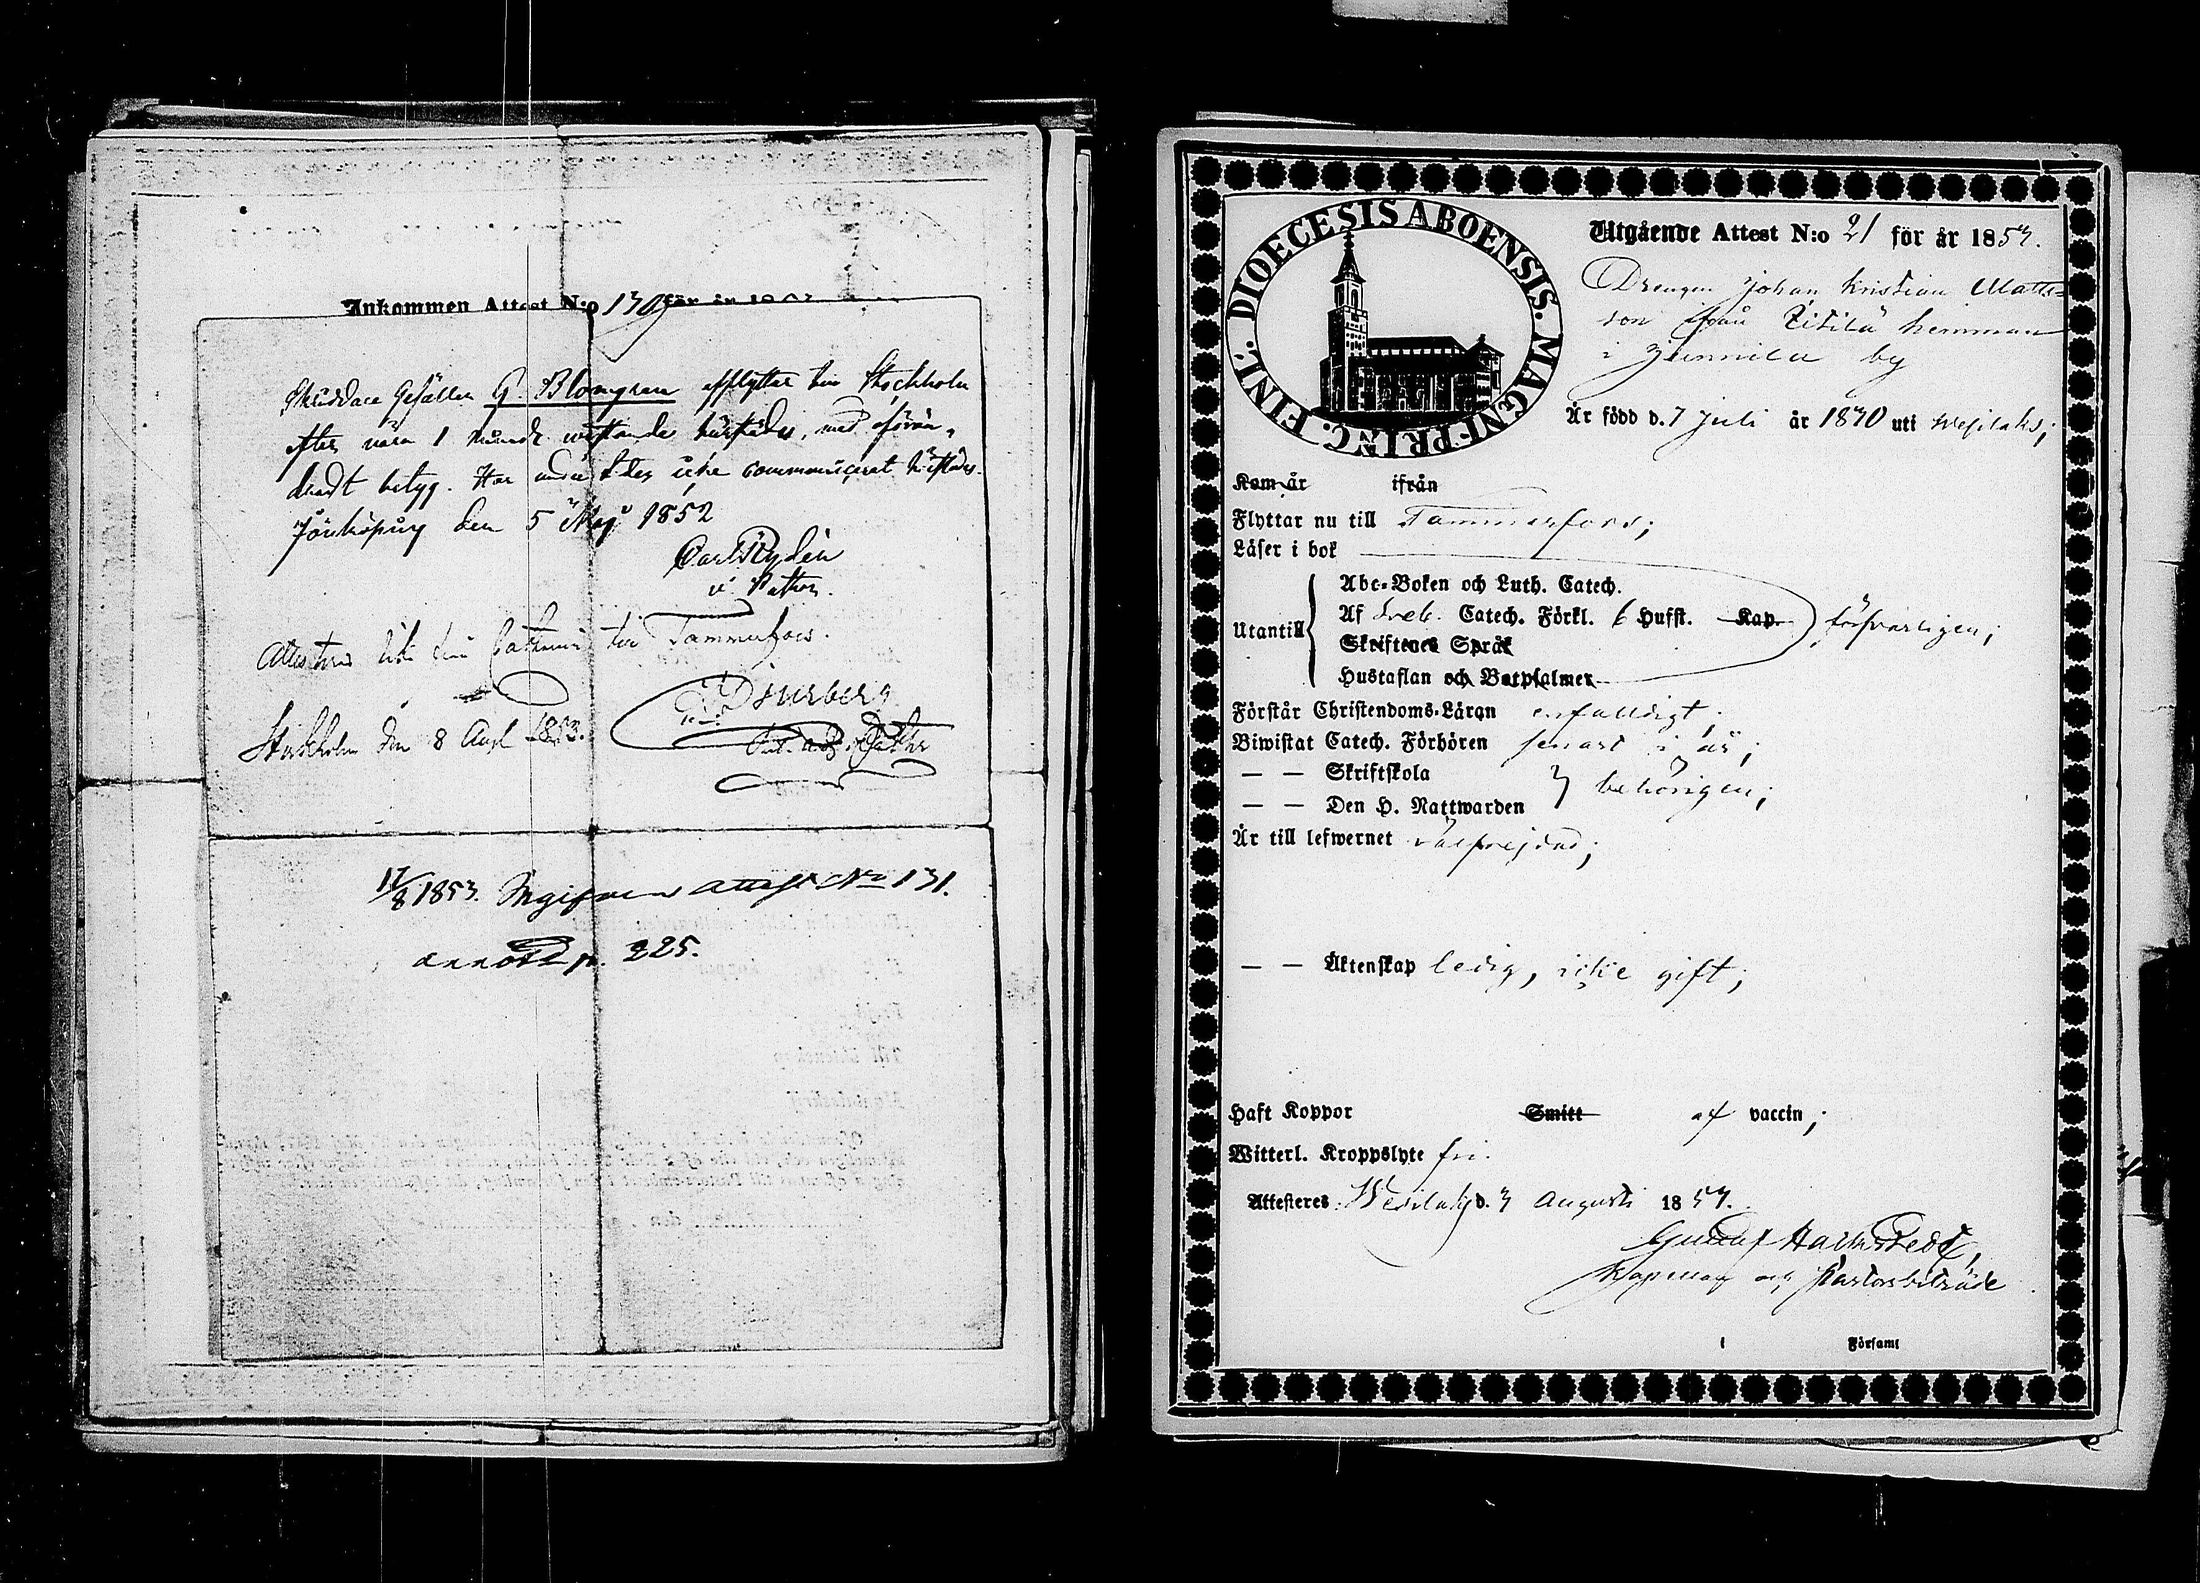 Inkommen Attest N:o 130 för år 18
Skräddare Gesällen G. Blomgren afflyttar till Stockholm
efter nära 1 månads wistande härstädes, med oförän-
dradt betyg. Har under tiden icke communicerat härstädes.
Jönköping den 5 Maj 1852
Carl Rydén
v. Pastor.
Attesteras till Tammerfors.
Stockholm den 8 Aug 1853.
Djurberg
17/8 1853. Ingifven attest No 131.
annot p. 225.
DIOECESIS ABOENSIS. MAGNI PRINC. FINL.
Utgående Attest N:o 21 för år 1853.
Drengen Johan Kristian Matts-
son från hemman
i by
Är född d. 7 Juli år 1830 uti Wesilaks;
Kom år ifrån
Flyttar nu till Tammerfors;
Läser i bok
Abc-Boken och Luth. Catech.
Utantill Af Sveb. Catech. Förkl. 6 Hufst. Kap. försvarligen;
Skriftenes Språk
Hustaflan och Botpsalmer
Förstår Christendoms-Läran enfaldigt;
Biwistat Catech. Förhören senast i år;
— — Skriftskola
— — Den H. Nattwarden behörigen;
Är till lefwernet välfrejdad;
— — Äktenskap ledig, icke gift;
Haft Koppor Smitt af vaccin;
Witterl. Kroppslyte fri.
Attesteras: Wesilaks d. 3 Augusti 1853.
Gustaf Halmstedt,
Kapellan och Pastorsbiträde
i Församl